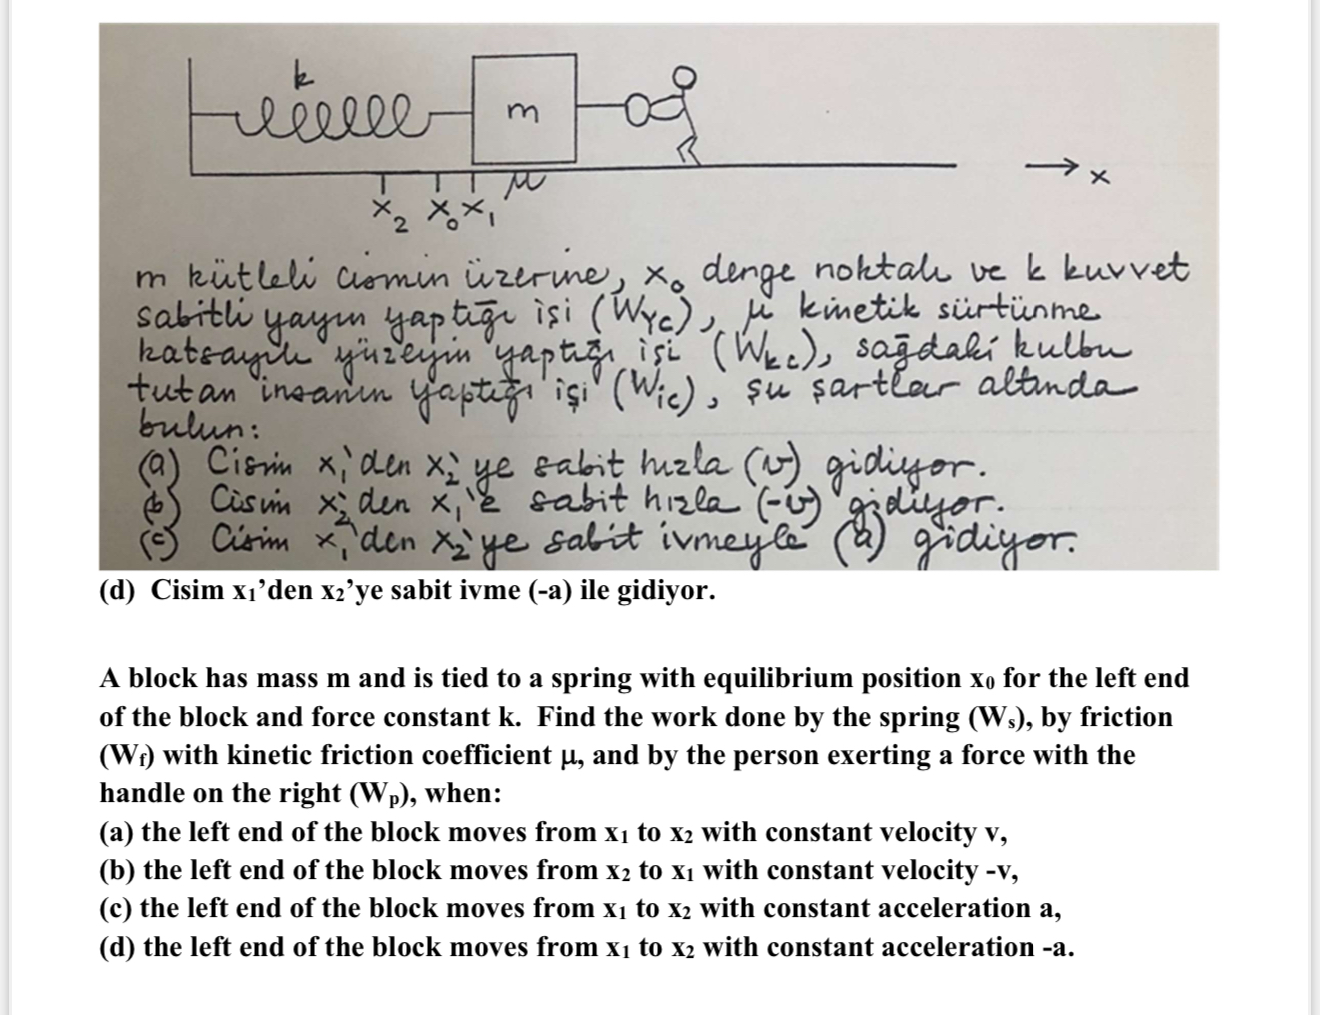 k
m
μ
x
x₂ x₀ x₁
m kütleli cismin üzerine, x₀ denge noktalı ve k kuvvet
sabitli yayın yaptığı işi (Wyc), μ kinetik sürtünme
katsayılı yüzeyin yaptığı işi (Wkc), sağdaki kulbu
tutan insanın yaptığı işi (Wic), şu şartlar altında
bulun:
(a) Cisim x₁'den x₂'ye sabit hızla (v) gidiyor.
(b) Cisim x₂'den x₁'e sabit hızla (-v) gidiyor.
(c) Cisim x₁'den x₂'ye sabit ivmeyle (a) gidiyor.
(d) Cisim x₁’den x₂’ye sabit ivme (-a) ile gidiyor.
A block has mass m and is tied to a spring with equilibrium position x₀ for the left end
of the block and force constant k. Find the work done by the spring (Wₛ), by friction
(Wf) with kinetic friction coefficient μ, and by the person exerting a force with the
handle on the right (Wₚ), when:
(a) the left end of the block moves from x₁ to x₂ with constant velocity v,
(b) the left end of the block moves from x₂ to x₁ with constant velocity -v,
(c) the left end of the block moves from x₁ to x₂ with constant acceleration a,
(d) the left end of the block moves from x₁ to x₂ with constant acceleration -a.